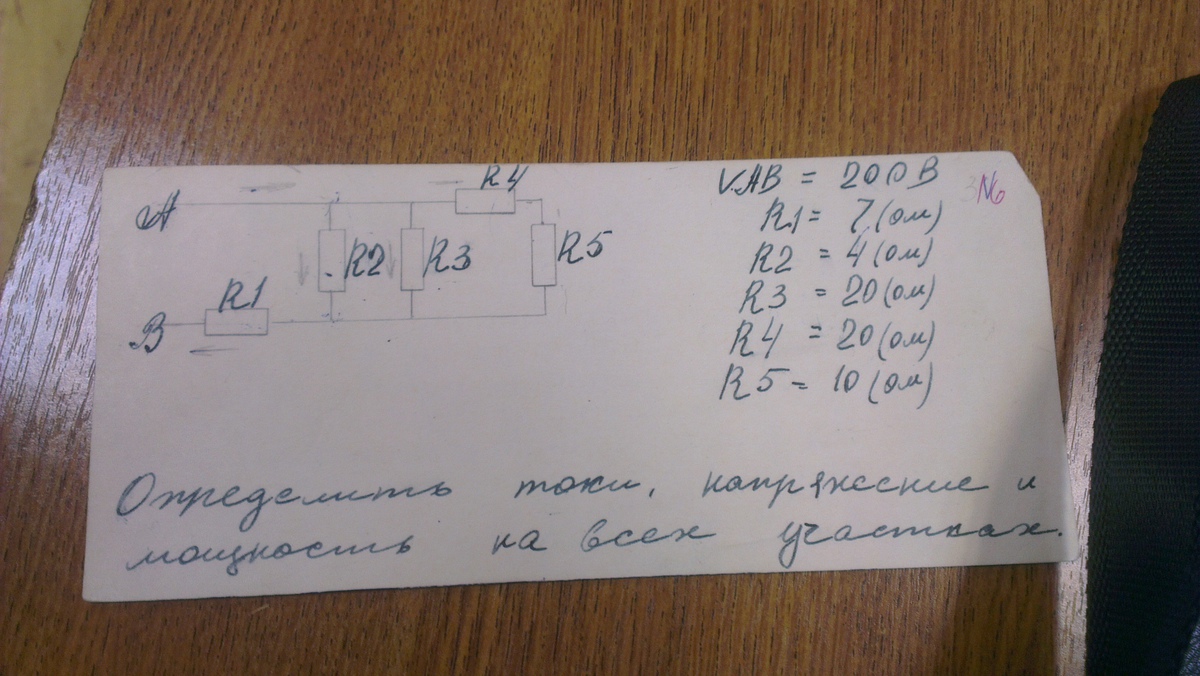 A
R4
R2
R3
R5
R1
B
VАВ = 200 В
R1 = 7 (ом)
R2 = 4 (ом)
R3 = 20 (ом)
R4 = 20 (ом)
R5 = 10 (ом)
N6
Определить токи, напряжение и
мощность на всех участках.